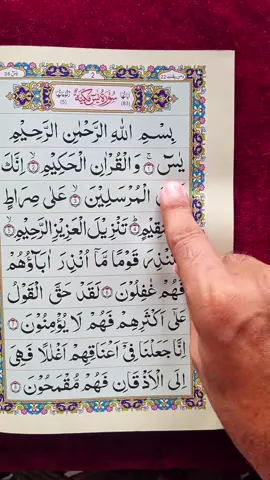 سُوْرَةُ يٰسٓ مَكِّيَّةٌ
2
بِسْمِ اللّٰهِ الرَّحْمٰنِ الرَّحِيْمِ
يٰسٓ وَالْقُرْاٰنِ الْحَكِيْمِ اِنَّكَ
الْمُرْسَلِيْنَ عَلٰى صِرَاطٍ
تَنْزِيْلَ الْعَزِيْزِ الرَّحِيْمِ
قَوْمًا مَّاۤ اُنْذِرَ اٰبَآؤُهُمْ
فَهُمْ غٰفِلُوْنَ لَقَدْ حَقَّ الْقَوْلُ
عَلٰۤى اَكْثَرِهِمْ فَهُمْ لَا يُؤْمِنُوْنَ
اِنَّا جَعَلْنَا فِيْۤ اَعْنَاقِهِمْ اَغْلٰلًا فَهِيَ
اِلَى الْاَذْقَانِ فَهُمْ مُّقْمَحُوْنَ